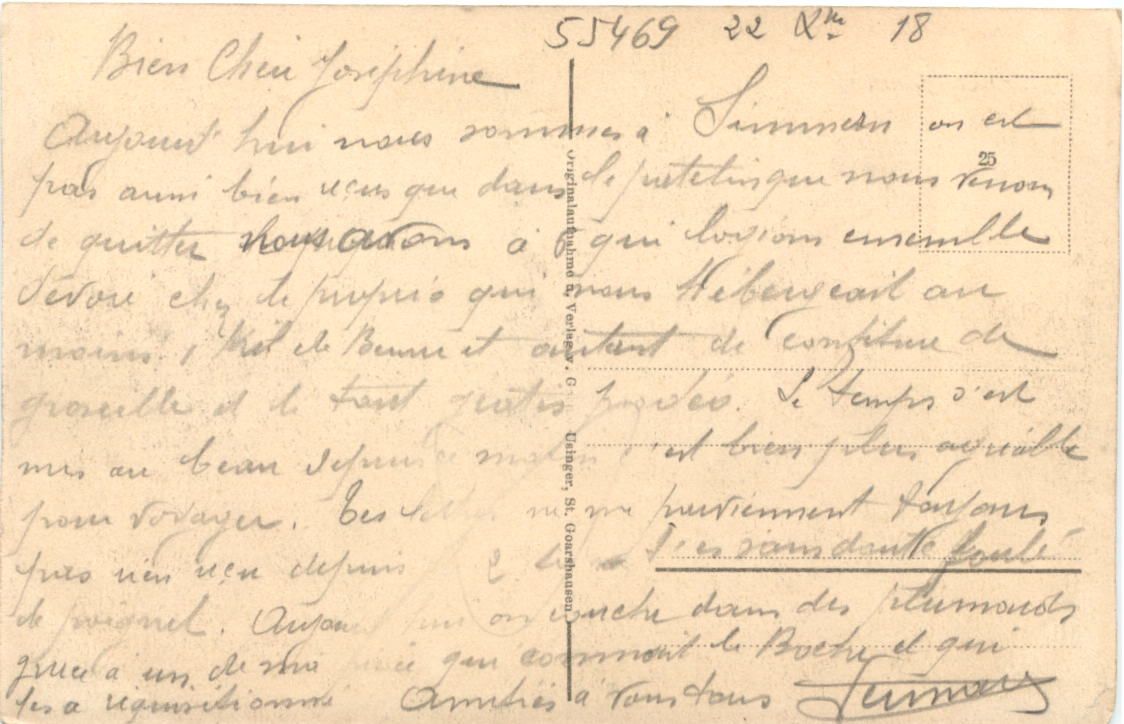 55469 22 Xbre 18
Bien Chère Joséphine
Aujourd'hui nous sommes à Simmern on est
pas aussi bien reçus que dans le patelin que nous venons
de quitter nous avons à 6 qui logions ensemble
dévoré chez le proprio qui nous hébergeait au
moins 1 Kil de Beurre et autant de confiture de
groseille et le tout gratis
Le temps s'est
mis au beau depuis ce matin c'est bien plus agréable
pour voyager. Tes lettres ne me parviennent toujours
pas rien reçu depuis le 2
t'es sans doute foulé
le poignet. Aujourd'hui on couche dans des plumards
grace à un de mes qui connait le Boche et qui
les a réquisitionné Amitiés à vous tous
25
Originalaufnahme u. Verlag v. G. Usinger, St. Goarshausen